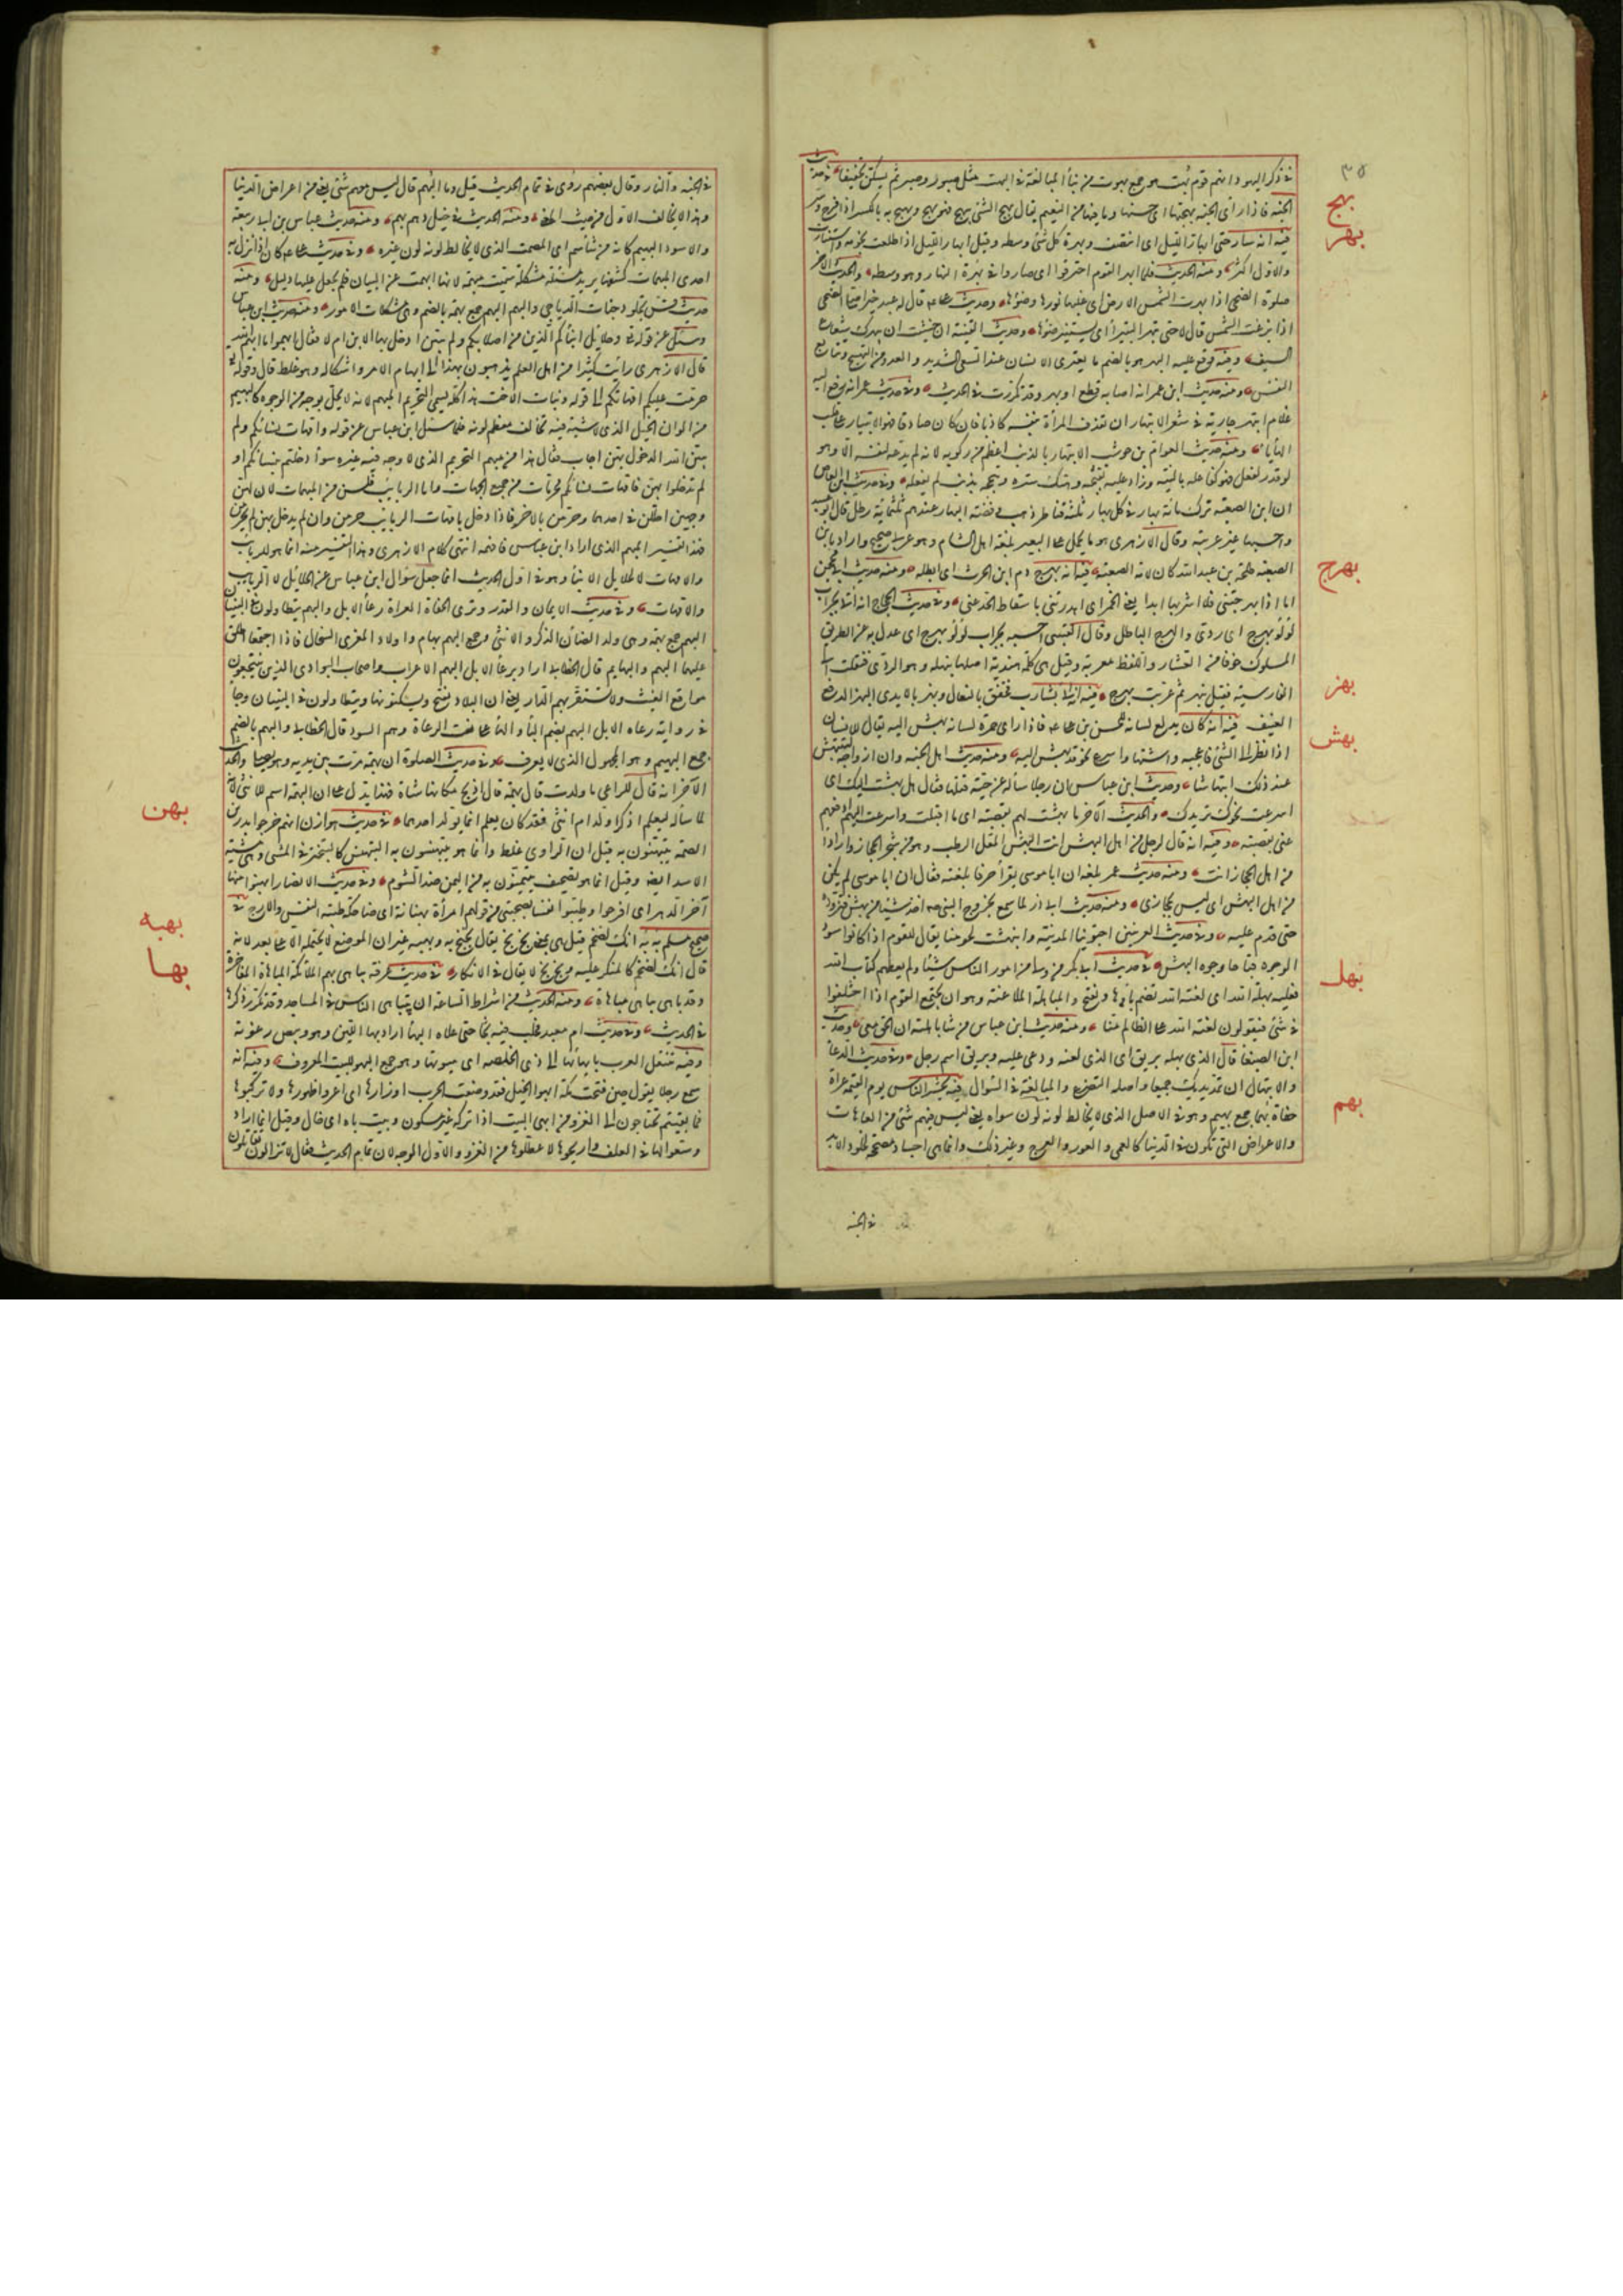 ٣٥
في ذكر اليهود انهم قوم بهت هو جمع بهوت من بنأ المبالغة في البهت مثل صبور وصبر ثم يسكن تخفيفا في حديث
الجنة فاذا رأى الجنة وبهجتها اى حسنها وما فيها من النعيم يقال بهج الشئ يبهج فهو بهيج وبهج به بالكسر اذا فرح وسر
بهج
فيه انه سار حتى ابهار الليل اى انتصف وبهرة كل شئ وسطه وقيل ابهار الليل اذا طلعت نجومه واستنارت
بهر
والاول اكثر ومنه الحديث فلما ابهر القوم احترقوا اى صاروا في بهرة النهار وهو وسطه والحديث الآخر
صلوة الضحى اذا بهرت الشمس الارض اى غلبها نورها وضوؤها وحديث على قال له عبد خير اصلى الضحى
اذا بزغت الشمس قال لا حتى تبهر البتيرأ اى يستنير ضوؤها وحديث الفتنة ان خشيت ان يبهرك شعاع
السيف وفيه وقع عليه البهر هو بالضم ما يعترى الانسان عند السعى الشديد والعدو من النهيج وتتابع
النفس ومنه حديث ابن عمر انه اصابه قطع او بهر وقد تكررت في الحديث وفي حديث عمر انه رفع اليه
غلام ابتهر جارية في شعر الابتهار ان تقذف المرأة بنفسه كاذبا فان كان صادقا فهو الابتيار على قلب
الهأيا ومنه حديث العوام بن حوشب الابتهار بالذنب اعظم من ركوبه لانه لم يدعه لنفسه الا وهو
لو قدر لفعل فهو كفاعله بالنية وزاد عليه بقحة وهتك ستره وتبجحه بذنب لم يفعله وفي حديث ابن العاص
ان ابن الصعبة ترك مائة بهار في كل بهار ثلثة قناطير ذهب وفضة البهار عندهم ثلثمائة رطل قال ابو عبيد
واحسبها غير عربية وقال الازهرى هو ما يحمل على البعير بلغة اهل الشام وهو عربى صحيح واراد بابن
الصعبة طلحة بن عبيد الله كان لامه الصعبة فيه انه بهرج دم ابن الحرث اى ابطله ومنه حديث ابى محجن
بهرج
اما اذا بهرجتنى فلا اشربها ابدا يعنى الخمر اى اهدرتنى باسقاط الحد عنى وفي حديث الحجاج انه اتى بجراب
لؤلؤ بهرج اى ردئ والبهرج الباطل وقال القتيبى احسبه بجراب لؤلؤ بهرج اى عدل به عن الطريق
المسلوك خوفا من العشار واللفظة معربة وقيل هى كلمة هندية اصلها نبهله وهو الردئ فنقلت الى
الفارسية فقيل نبهره ثم عربت بهرج فيه انه اتى بشارب فخفق بالنعال وبهز بالايدى البهز الدفع
بهز
العنيف فيه انه كان يدلع لسانه للحسن بن على فاذا راى حمرة لسانه بهش اليه يقال للانسان
بهش
اذا نظر الى الشئ فاعجبه واشتهاه واسرع نحوه قد بهش اليه ومنه حديث اهل الجنة وان ازواجه لتبتهشن
عند ذلك ابتهاشا وحديث ابن عباس ان رجلا سأله عن حية قتلها فقال هل بهشت اليك اى
اسرعت نحوك تريدك والحديث الآخر ما بهشت لهم بقصبة اى ما اقبلت واسرعت اليهم ادفعهم
عنى بقصبة وفيه انه قال لرجل من اهل البهش انت البهش المقل الرطب وهو من شجر الحجاز واراد أ
من اهل الحجاز انت ومنه حديث عمر بلغه ان ابا موسى يقرأ حرفا بلغته فقال ان ابا موسى لم يكن
من اهل البهش اى ليس بحجازى ومنه حديث ابى ذر لما سمع بخروج النبى صم اخذ شيئا من بهش فتزوده
حتى قدم عليه وفي حديث العرنيين اجتوينا المدينة وانبهشت لحومنا يقال للقوم اذا كانوا سود
الوجوه قباحا وجوه البهش في حديث ابى بكر من ولى من امور الناس شيئا ولم يعطهم كتاب الله
بهل
فعليه بهلة الله اى لعنة الله تضم باؤها وتفتح والمباهلة الملاعنة وهو ان يجتمع القوم اذا اختلفوا
في شئ فيقولون لعنة الله على الظالم منا ومنه حديث ابن عباس من شاء باهلته ان الحق معى وحديث
ابن الصبغأ قال الذى بهله بريق اى الذى لعنه ودعى عليه وبريق اسم رجل وفي حديث الدعأ
والابتهال ان تمد يديك جميعا واصله التضرع والمبالغة في السؤال فيه يحشر الناس يوم القيمة عراة
حفاة بهما جمع بهيم وهو في الاصل الذى لا يخالط لونه لون سواه يعنى ليس فيهم شئ من العاهات
بهم
والاعراض التى تكون في الدنيا كالعمى والعور والعرج وغير ذلك وانما هى اجساد مصححة لخلود الابد
في الجنة
في الجنة والنار وقال بعضهم روى في تمام الحديث قيل وما البهم قال ليس معهم شئ يعنى من اعراض الدنيا
وهذا لا يخالف الاول من حيث المعنى ومنه الحديث في خيل دهم بهم ومنه حديث عياش بن ابى ربيعة
والاسود البهيم كانه من ساسم اى المصمت الذى لا يخالط لونه لون غيره وفي حديث على كان اذا نزل به
احدى المبهمات كشفها يريد مسئلة مشكلة سميت مبهمة لانها ابهمت عن البيان فلم يجعل عليها دليل ومنه
حديث قس تجلو دجنات الدياجى والبهم البهم جمع بهمة بالضم وهى مشكلات الامور ومنه حديث ابن عباس
وسئل عن قوله تع وحلايل ابنائكم الذين من اصلابكم ولم يبين ادخل بها الابن ام لا فقال ابهموا ما ابهم الله
قال الازهرى رأيت كثيرا من اهل العلم يذهبون بهذا الى ابهام الامر واشكاله وهو غلط قال وقوله تع
حرمت عليكم امهاتكم الى قوله وبنات الاخت هذا كله يسمى التحريم المبهم لانه لا يحل بوجه من الوجوه كالبهيم
من الوان الخيل الذى لا شية فيه تخالف معظم لونه فلما سئل ابن عباس عن قوله وامهات نسائكم ولم
يبين الله الدخول بهن اجاب فقال هذا من مبهم التحريم الذى لا وجه فيه غيره سوأ دخلتم بنسائكم او
لم تدخلوا بهن فامهات نسائكم محرمات من جميع الجهات واما الربايب فلسن من المبهمات لان لهن
وجهين احللن في احدهما وحرمن بالآخر فاذا دخل بامهات الربايب حرمن وان لم يدخل بهن لم يحرمن
فهذا تفسير المبهم الذى اراد ابن عباس فافهمه انتهى كلام الازهرى وهذا التفسير منه انما هو للربايب
والامهات لا لحلايل الابنأ وهو في اول الحديث انما جعل سؤال ابن عباس عن الحلائل لا الربايب
والامهات وفي حديث الايمان والقدر وترى الحفاة العراة رعأ الابل والبهم يتطاولون في البنيان
البهم جمع بهمة وهى ولد الضأن الذكر والانثى وجمع البهم بهام واولاد المعزى السخال فاذا اجتمعا اطلق
عليهما البهم والبهايم قال الخطابى اراد برعأ الابل البهم الاعراب واصحاب البوادى الذين ينتجعون
مواقع الغيث ولا تستقر بهم الدار يعنى ان البلاد تفتح فيسكنونها ويتطاولون في البنيان وجأ
في رواية رعاه الابل البهم بضم البأ والهأ على نعت الرعاة وهم السود قال الخطابى والبهم بالضم
جمع البهيم وهو المجهول الذى لا يعرف وفي حديث الصلوة ان بهمة مرت بين يديه وهو يصلى والحديث
الآخر انه قال للراعى ما ولدت قال بهمة قال اذبح مكانها شاة فهذا يدل على ان البهمة اسم للانثى لانه
انما سأله ليعلم اذكرا ولد ام انثى فقد كان يعلم انما تولد احدهما في حديث هوازن انهم خرجوا بدريد بن
بهن
الصمة يتبهنون به قيل ان الراوى غلط وانما هو يتبهنسون به التبهنس كالتبختر في المشى وهى مشية
الاسد ايضا وقيل انما هو تصحيف يتيمنون به من اليمن ضد الشوم وفي حديث الانصار ابهنوا منها
آخر الدهر اى افرحوا وطيبوا نفسا بصحبتى من قولهم امرأة بهنانة اى ضاحكة طيبة النفس والارج في
صحيح مسلم به به انك لضخم قيل هى بمعنى بخ بخ يقال بخبخ به وبهبه غير ان الموضع لا يحتمله الا على بعد لانه
بهبه
قال انك لضخم كالمنكر عليه وبخ بخ لا يقال في الانكار في حديث عرفة يباهى بهم الملائكة المباهاة المفاخرة
بها
وقد باهى يباهى مباهاة ومنه الحديث من اشراط الساعة ان يتباهى الناس في المساجد وقد تكرر ذكرها
في الحديث وفي حديث ام معبد فحلب فيه ثجا حتى علاه البهأ اراد بهأ اللبن وهو وبيص رغوته
وفيه تنتقل العرب بابهائها الى ذى الخلصة اى بيوتها وهو جمع البهو للبيت المعروف وفيه انه
سمع رجلا يقول حين فتحت مكة ابهوا الخيل فقد وضعت الحرب اوزارها اى اعروا ظهورها ولا تركبوها
فما بقيتم تحتاجون الى الغزو من ابهى البيت اذا تركه غير مسكون وبيت باه اى خال وقيل انما اراد
وسعوا لها في العلف واريحوها لا عطلوها من الغزو والاول الوجه لان تمام الحديث فقال لا تزالون تقاتلون